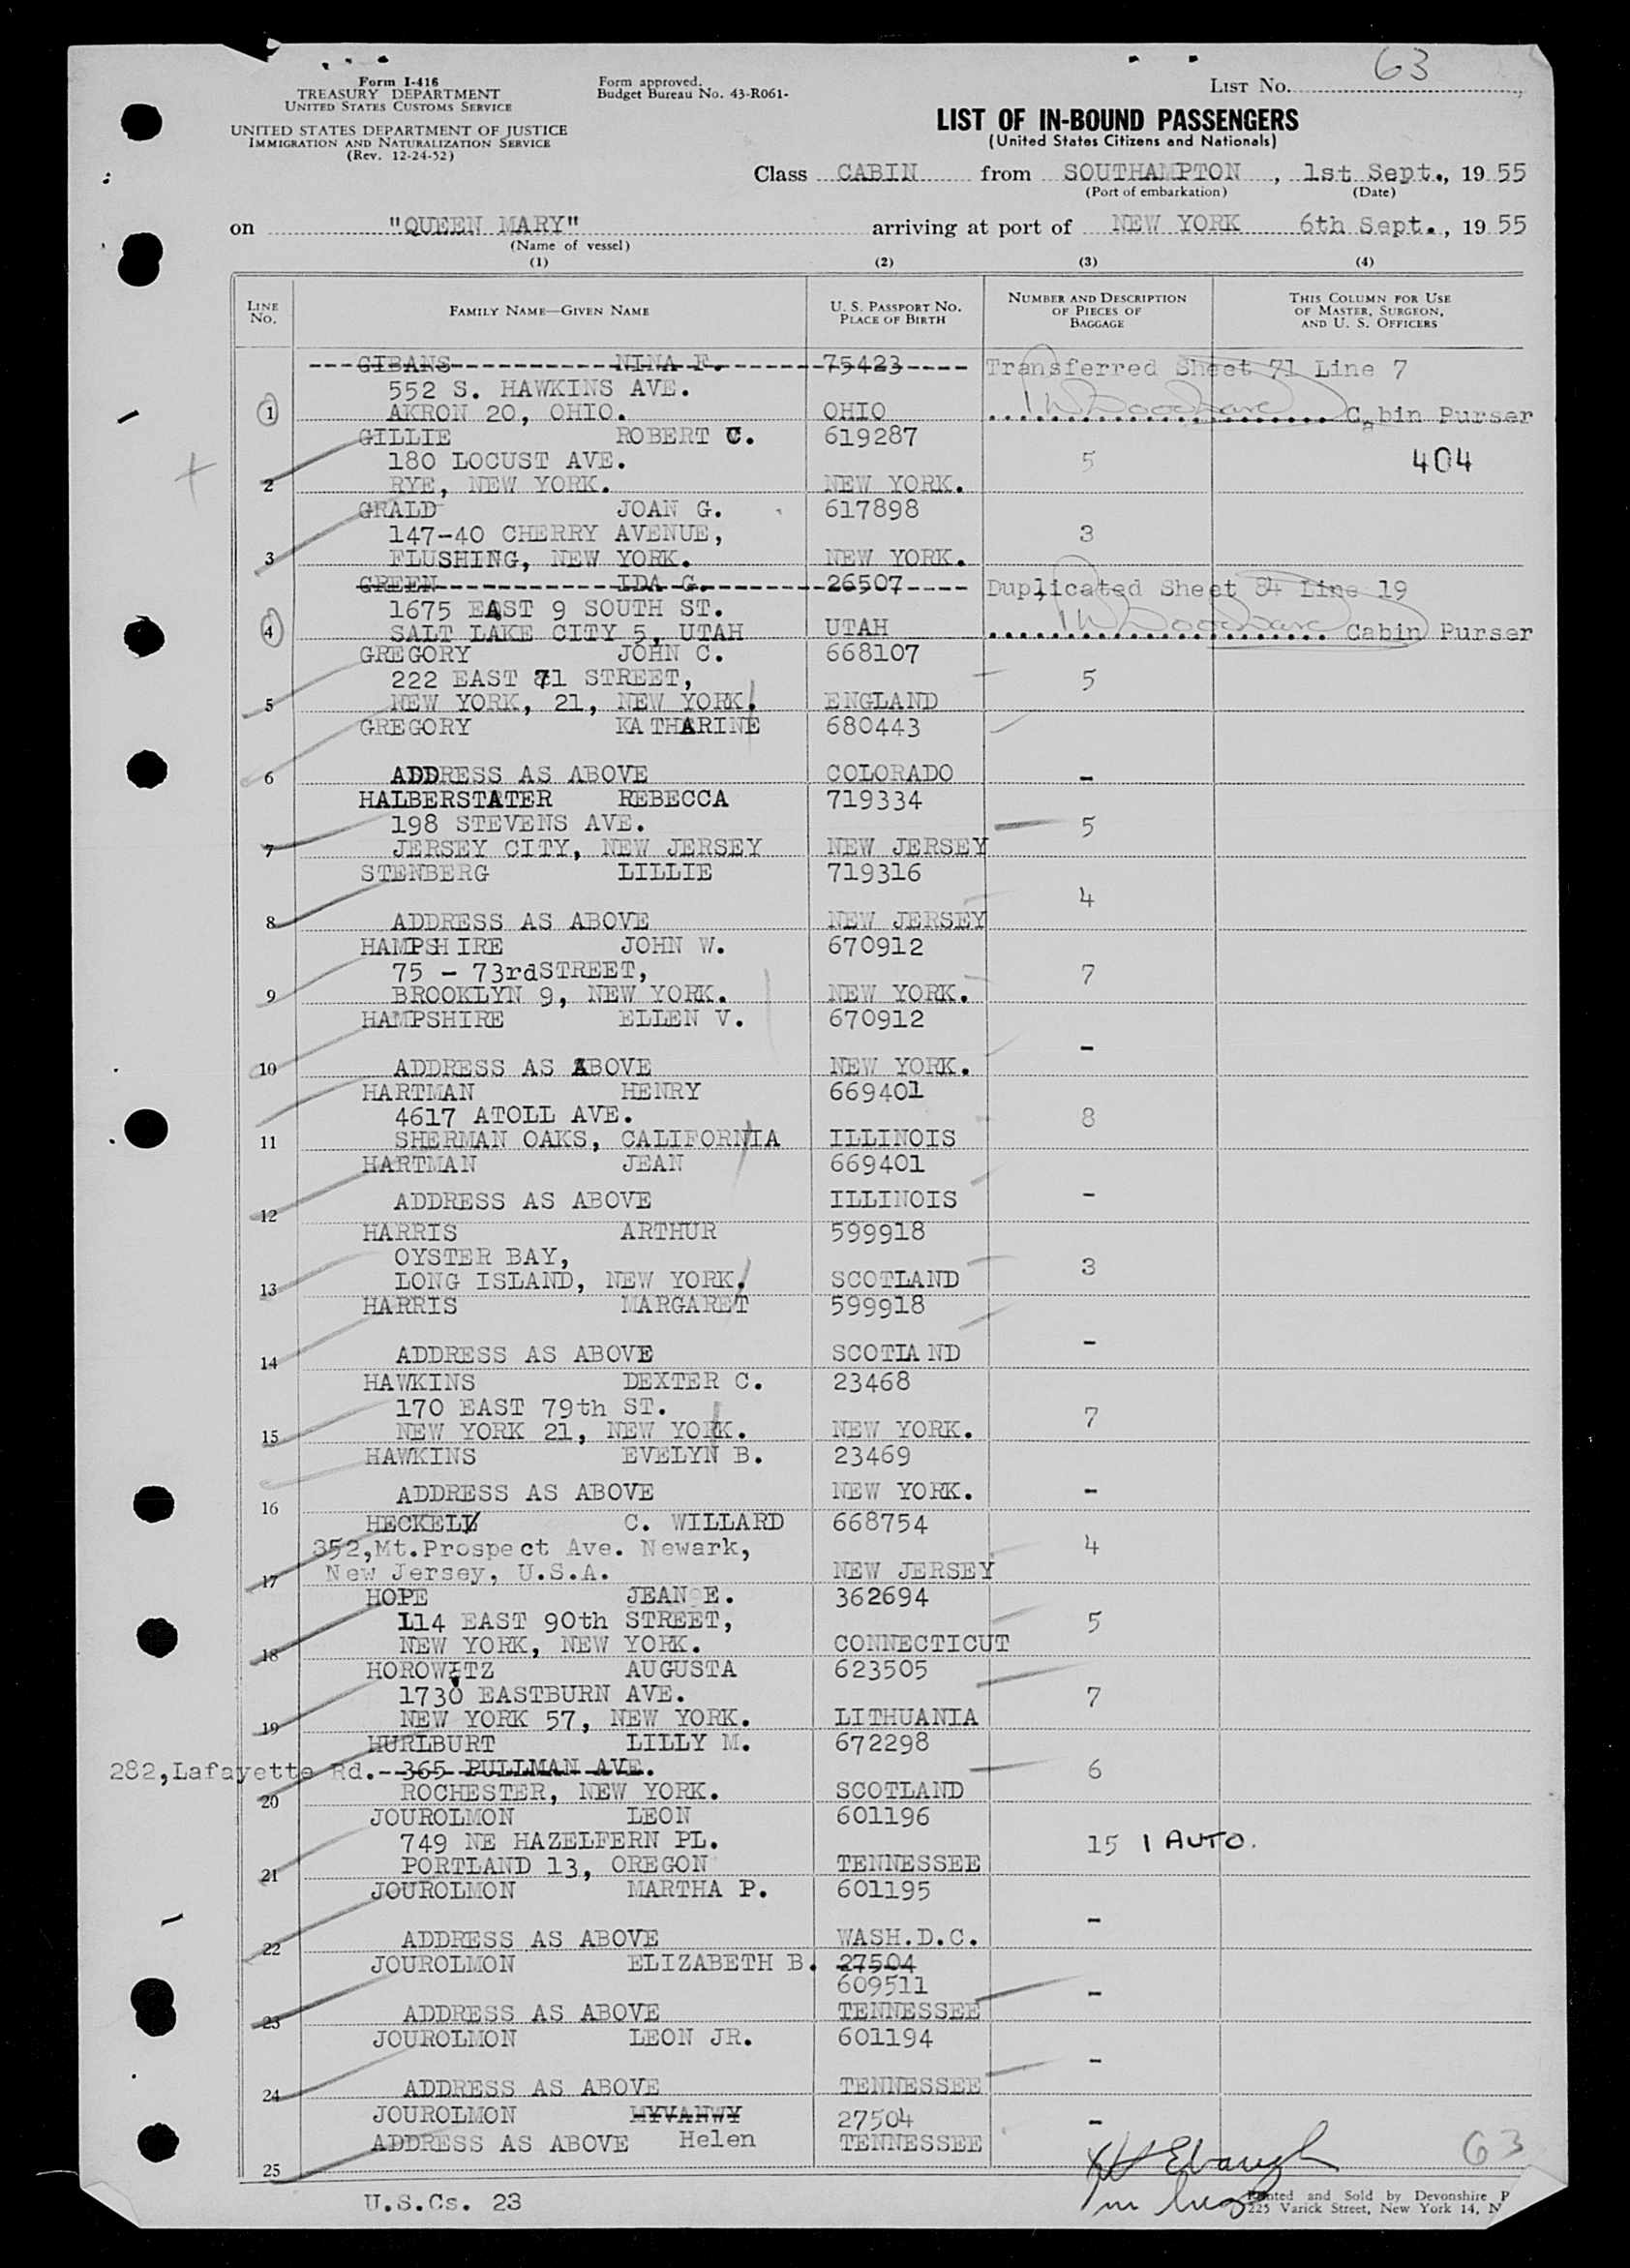 63
Form I-416
TREASURY DEPARTMENT
UNITED STATES CUSTOMS SERVICE
UNITED STATES DEPARTMENT OF JUSTICE
IMMIGRATION AND NATURALIZATION SERVICE
(Rev. 12-24-52)
Form approved.
Budget Bureau No. 43-R061-
LIST NO.
LIST OF IN-BOUND PASSENGERS
(United States Citizens and Nationals)
Class CABIN from SOUTHAMPTON, 1st Sept., 19 55
(Port of embarkation) (Date)
on "QUEEN MARY" arriving at port of NEW YORK 6th Sept., 19 55
(Name of vessel)
(1) (2) (3) (4)
LINE NO. FAMILY NAME—GIVEN NAME U. S. PASSPORT NO. PLACE OF BIRTH NUMBER AND DESCRIPTION OF PIECES OF BAGGAGE THIS COLUMN FOR USE OF MASTER, SURGEON, AND U. S. OFFICERS
GIBANS NINA F. 75423 Transferred Sheet 71 Line 7
552 S. HAWKINS AVE.
1 AKRON 20, OHIO. OHIO Cabin Purser
GILLIE ROBERT C. 619287
180 LOCUST AVE. 5 404
2 RYE, NEW YORK. NEW YORK.
GRALD JOAN G. 617898
147-40 CHERRY AVENUE, 3
3 FLUSHING, NEW YORK. NEW YORK.
GREEN IDA G. 26507 Duplicated Sheet 84 Line 19
1675 EAST 9 SOUTH ST.
4 SALT LAKE CITY 5, UTAH UTAH Cabin Purser
GREGORY JOHN C. 668107
222 EAST 71 STREET, 5
5 NEW YORK, 21, NEW YORK. ENGLAND
GREGORY KATHARINE 680443
6 ADDRESS AS ABOVE COLORADO -
HALBERSTATER REBECCA 719334
198 STEVENS AVE. 5
7 JERSEY CITY, NEW JERSEY NEW JERSEY
STENBERG LILLIE 719316
4
8 ADDRESS AS ABOVE NEW JERSEY
HAMPSHIRE JOHN W. 670912
75 - 73rdSTREET, 7
9 BROOKLYN 9, NEW YORK. NEW YORK.
HAMPSHIRE ELLEN V. 670912
-
10 ADDRESS AS ABOVE NEW YORK.
HARTMAN HENRY 669401
4617 ATOLL AVE. 8
11 SHERMAN OAKS, CALIFORNIA ILLINOIS
HARTMAN JEAN 669401
12 ADDRESS AS ABOVE ILLINOIS -
HARRIS ARTHUR 599918
OYSTER BAY, 3
13 LONG ISLAND, NEW YORK. SCOTLAND
HARRIS MARGARET 599918
-
14 ADDRESS AS ABOVE SCOTLAND
HAWKINS DEXTER C. 23468
170 EAST 79th ST. 7
15 NEW YORK 21, NEW YORK. NEW YORK.
HAWKINS EVELYN B. 23469
16 ADDRESS AS ABOVE NEW YORK. -
HECKELL C. WILLARD 668754
352,Mt.Prospect Ave. Newark, 4
17 New Jersey, U.S.A. NEW JERSEY
HOPE JEAN E. 362694
114 EAST 90th STREET, 5
18 NEW YORK, NEW YORK. CONNECTICUT
HOROWITZ AUGUSTA 623505
1730 EASTBURN AVE. 7
19 NEW YORK 57, NEW YORK. LITHUANIA
HURLBURT LILLY M. 672298
282,Lafayette Rd. 365 PULLMAN AVE. 6
20 ROCHESTER, NEW YORK. SCOTLAND
JOUROLMON LEON 601196
749 NE HAZELFERN PL. 15 1 AUTO.
21 PORTLAND 13, OREGON TENNESSEE
JOUROLMON MARTHA P. 601195
-
22 ADDRESS AS ABOVE WASH.D.C.
JOUROLMON ELIZABETH B. 27504
609511 -
23 ADDRESS AS ABOVE TENNESSEE
JOUROLMON LEON JR. 601194
-
24 ADDRESS AS ABOVE TENNESSEE
JOUROLMON MYVANWY 27504 -
ADDRESS AS ABOVE Helen TENNESSEE
25
63
U.S.Cs. 23
Printed and Sold by Devonshire P
225 Varick Street, New York 14, N